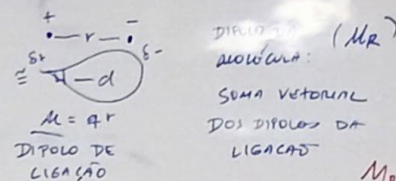 + -
• — r — •
δ+ δ-
≅ H — d
M = q r
DIPOLO DE
LIGAÇÃO
DIPOLO DA (MR)
MOLÉCULA:
SOMA VETORIAL
DOS DIPOLOS DA
LIGAÇÃO